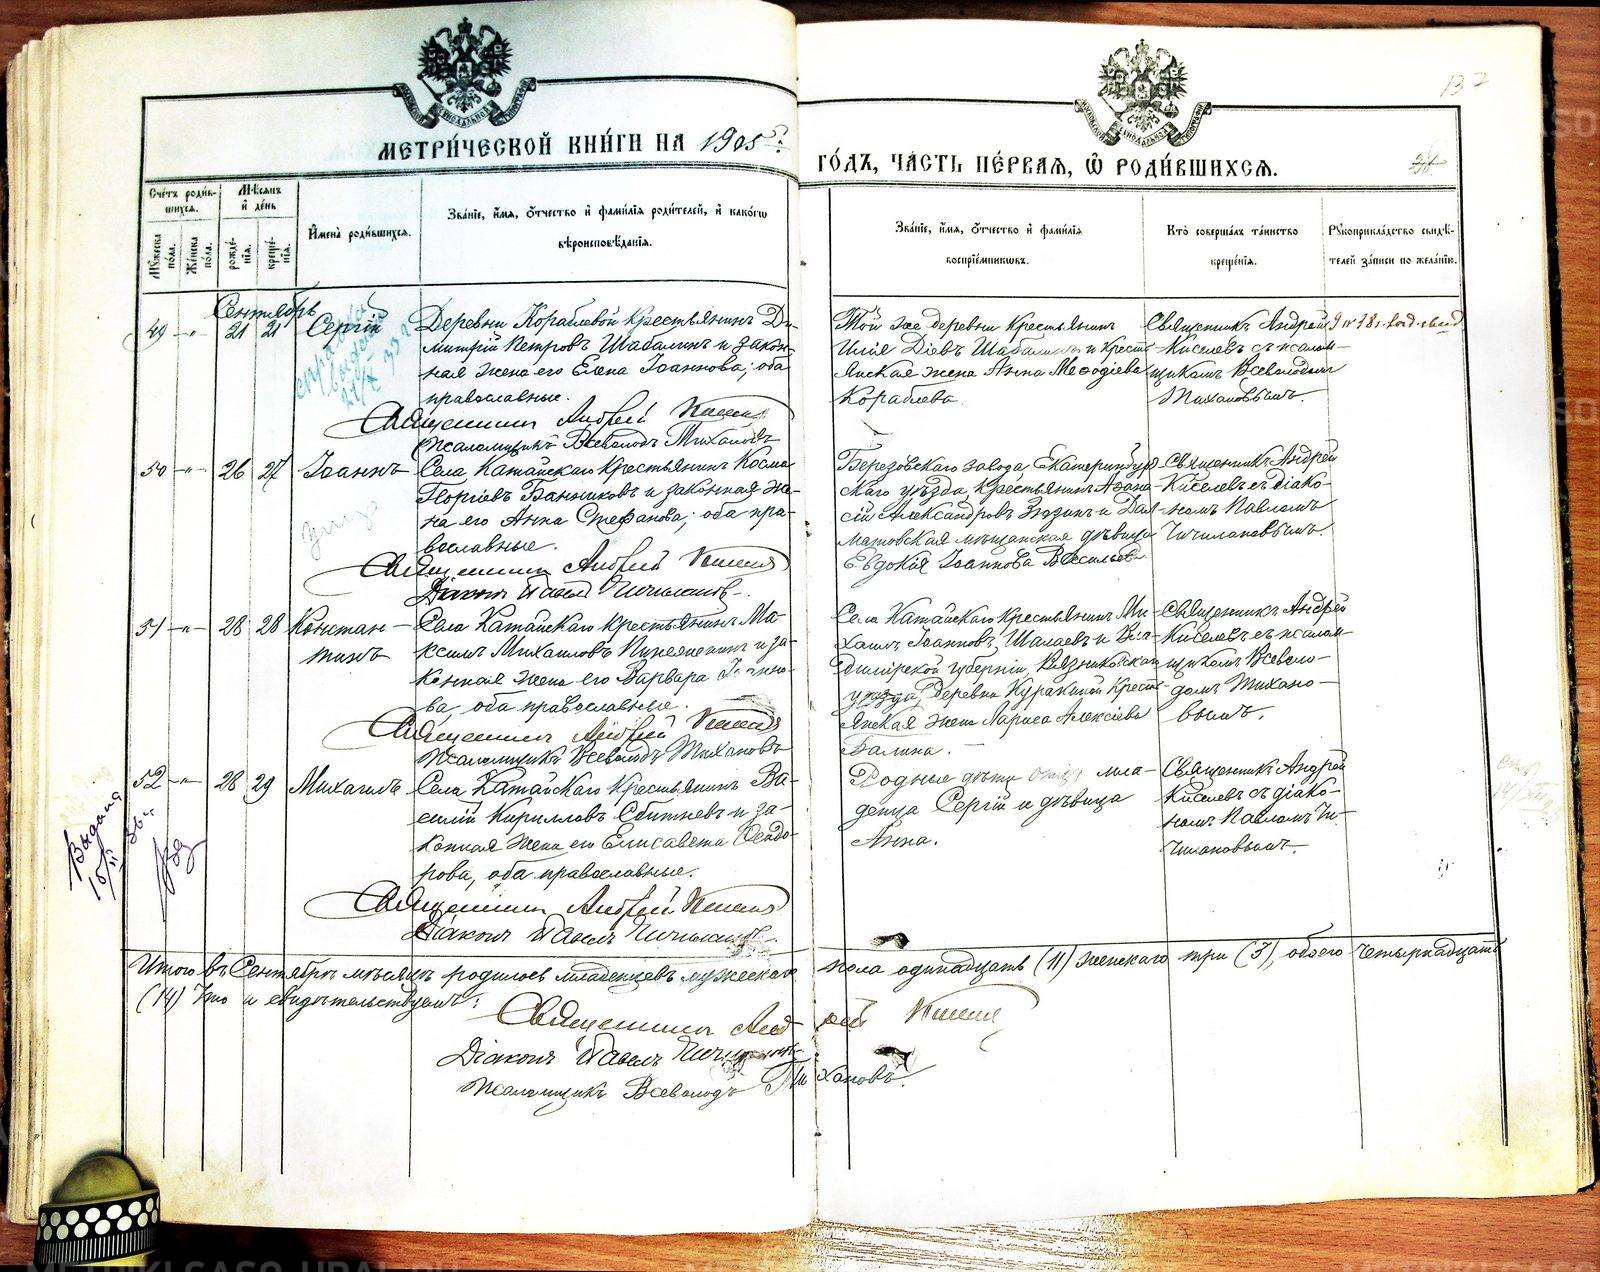 137
МЕТРИ́ЧЕСКОЙ КНИ́ГИ НА 1905
ГО́ДЪ, ЧА́СТЬ ПЕ́РВАЯ, Ѡ҆ РОДИ́ВШИХСЯ.
Сче́тъ роди́вшихся.
Мꙋ́жеска по́ла.
Же́нска по́ла.
Мѣ́сяцъ и҆ де́нь
рожде́нїя.
креще́нїя.
И҆мена̀ роди́вшихся.
Зва́нїе, и҆́мя, ѻ҆́тчество и҆ фами́лїя роди́телей, и҆ како́гѡ
вѣроисповѣ́данїя.
Зва́нїе, и҆́мя, ѻ҆́тчество и҆ фами́лїя
воспрїе́мникѡвъ.
Кто̀ соверша́лъ та́инство
креще́нїя.
Рꙋкоприкла́дство свидѣ́-
телей за́писи по жела́нїю.
Сентябрь
49 -"- 21 21 Сергій
Деревни Кораблевой крестьянинъ Ди-
митрій Петровъ Шабалинъ и закон-
ная жена его Елена Іоаннова; оба
православные.
Священникъ Андрей Киселевъ
Псаломщикъ Всеволодъ Тихановъ
Той же деревни крестьянинъ
Илія Діевъ Шабалинъ и кресть-
янская жена Анна Меѳодіева
Кораблева.
Священникъ Андрей
Киселевъ съ псалом-
щикомъ Всеволодомъ
Тихановымъ.
50 -"- 26 27 Іоаннъ
Села Катайскаго крестьянинъ Косма
Георгіевъ Банниковъ и законная же-
на его Анна Стефанова; оба пра-
вославные.
Священникъ Андрей Киселевъ
Діаконъ Павелъ Чичилановъ.
Березовскаго завода, Екатеринбург-
скаго уѣзда, крестьянинъ Аѳана-
сій Александровъ и Дал-
матовская мѣщанская дѣвица
Евдокія Іоаннова Васильева
Священникъ Андрей
Киселевъ съ діако-
номъ Павломъ
Чичилановымъ.
51 -"- 28 28 Констан-
тинъ
Села Катайскаго крестьянинъ Ма-
ксимъ Михаиловъ и за-
конная жена его Варвара Іоанно-
ва, оба православные.
Священникъ Андрей Киселевъ
Псаломщикъ Всеволодъ Тихановъ
Села Катайскаго крестьянинъ Ми-
хаилъ Іоанновъ Шалаевъ и Вла-
димірской губерніи, Вязниковскаго
уѣзда, деревни Куракиной крестьянская жена Лариса Алексіева
Балина.
Священникъ Андрей
Киселевъ съ псалом-
щикомъ Всево-
лодомъ Тихано-
вымъ.
52 -"- 28 29 Михаилъ
Села Катайскаго крестьянинъ Ва-
силій Кирилловъ Сбитневъ и за-
конная жена его Елисавета Ѳеодо-
рова, оба православные.
Священникъ Андрей Киселевъ
Діаконъ Павелъ Чичилановъ.
Родные дѣти отца мла-
денца Сергій и дѣвица
Анна.
Священникъ Андрей
Киселевъ съ діако-
номъ Павломъ Чи-
чилановымъ.
Итого въ Сентябрѣ мѣсяцѣ родилось младенцевъ мужескаго пола одинадцать (11) женскаго три (3), обоего четырнадцать
(14) Что и свидѣтельствуемъ:
Священникъ Андрей Киселевъ
Діаконъ Павелъ Чичилановъ.
Псаломщикъ Всеволодъ Тихановъ.